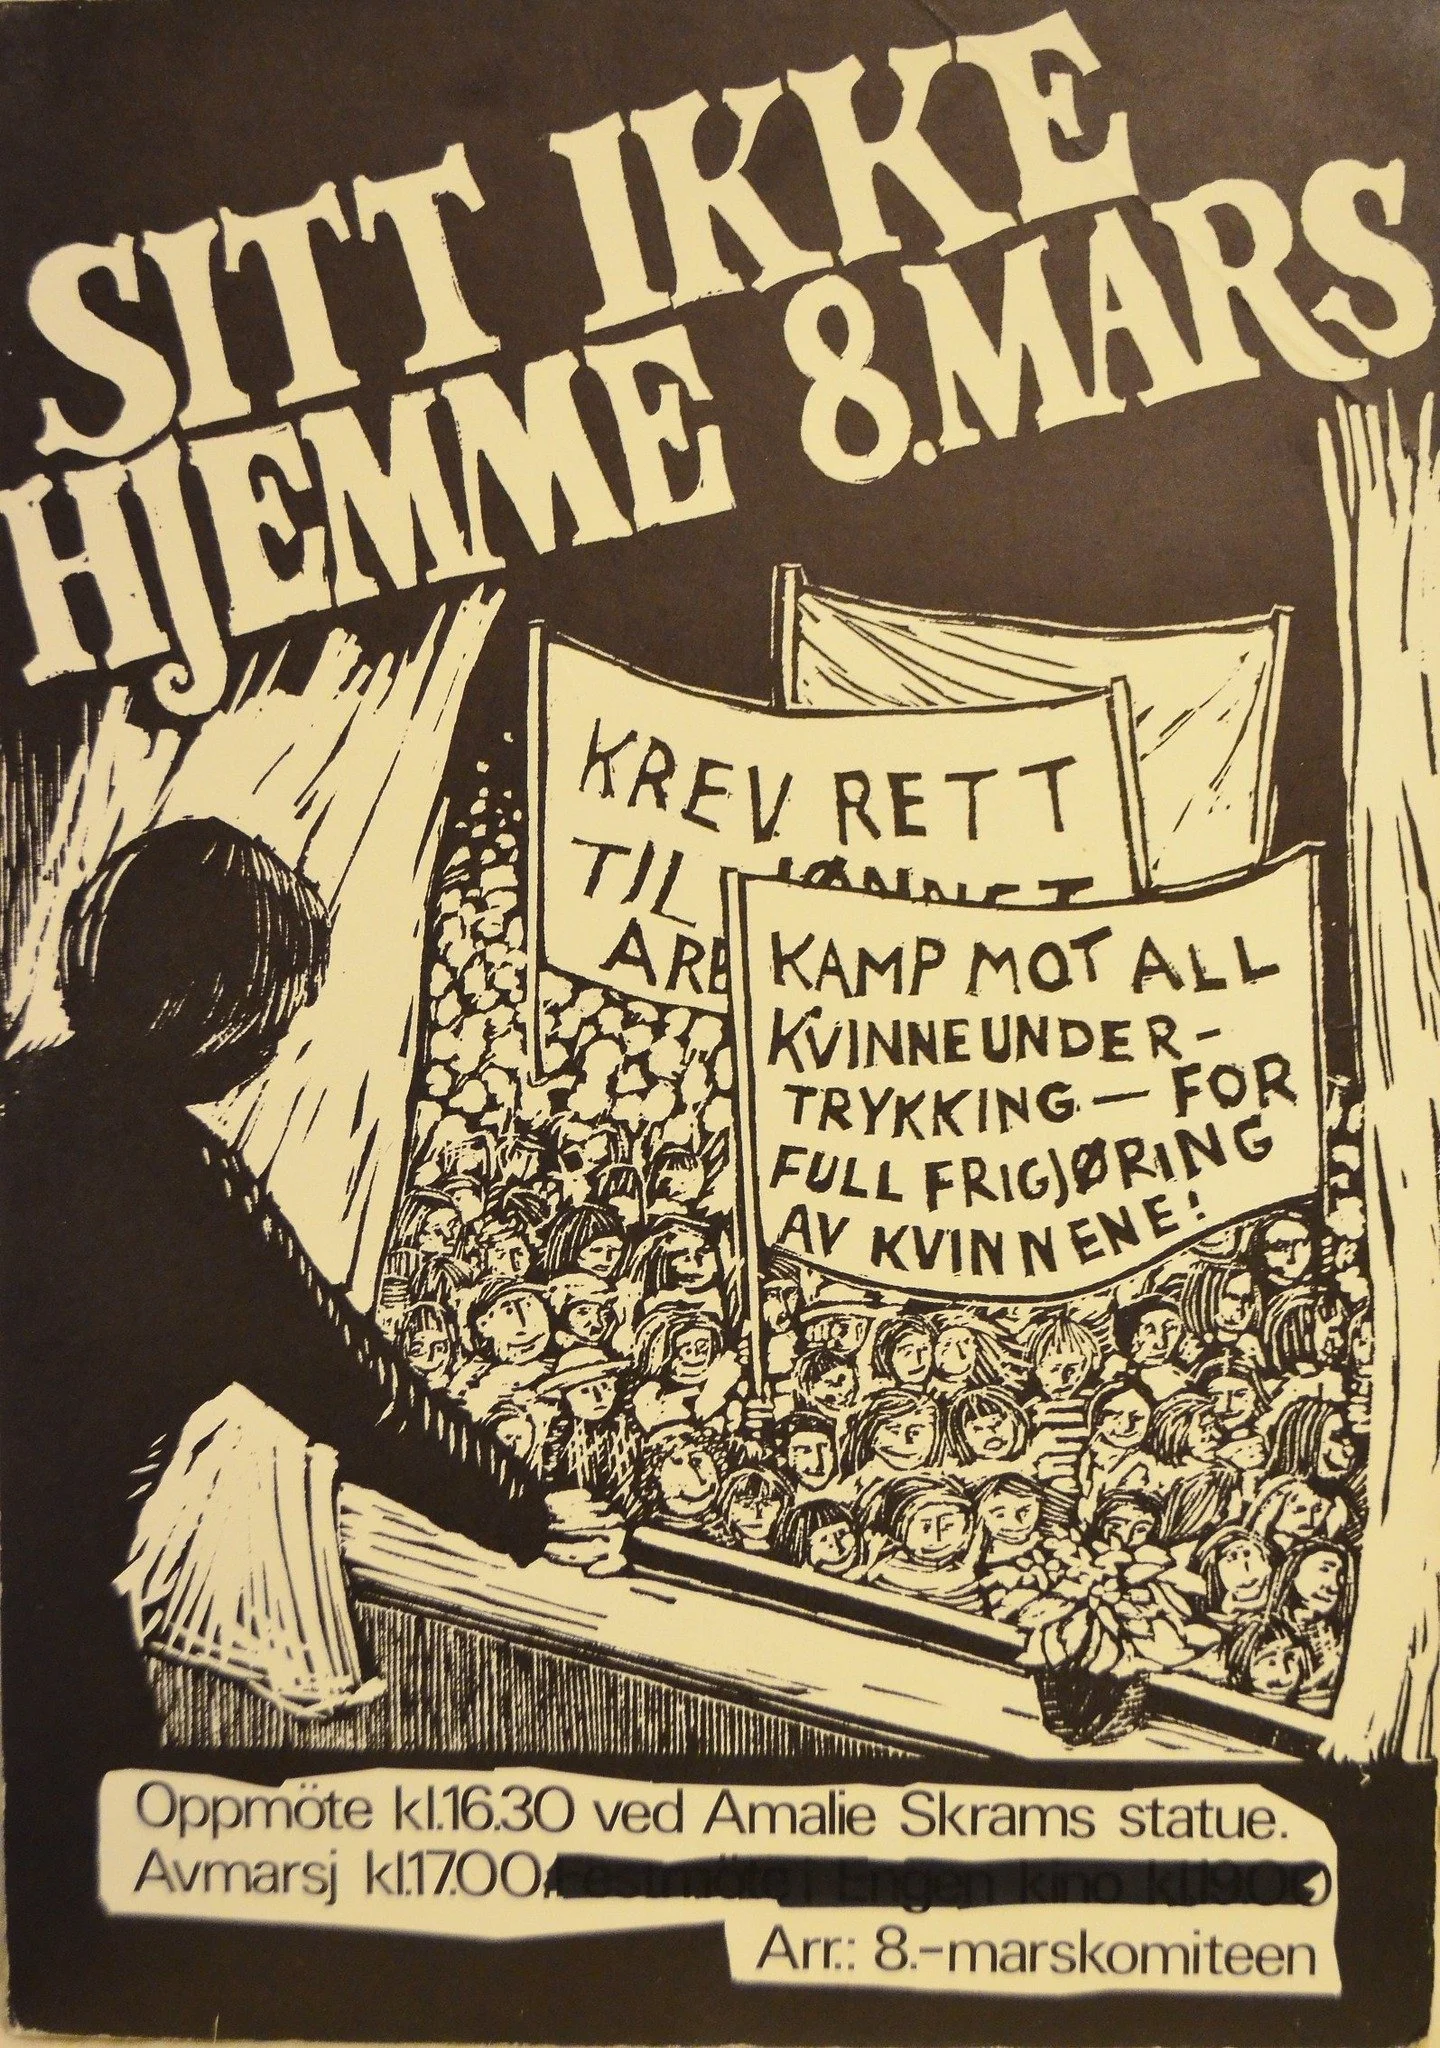 SITT IKKE
HJEMME 8. MARS
KREV RETT
TIL
KAMP MOT ALL
KVINNEUNDER-
TRYKKING — FOR
FULL FRIGJØRING
AV KVINNENE!
Oppmöte kl.16.30 ved Amalie Skrams statue.
Avmarsj kl.17.00. Festmöte i Engen kino kl.19.00
Arr.: 8.-marskomiteen